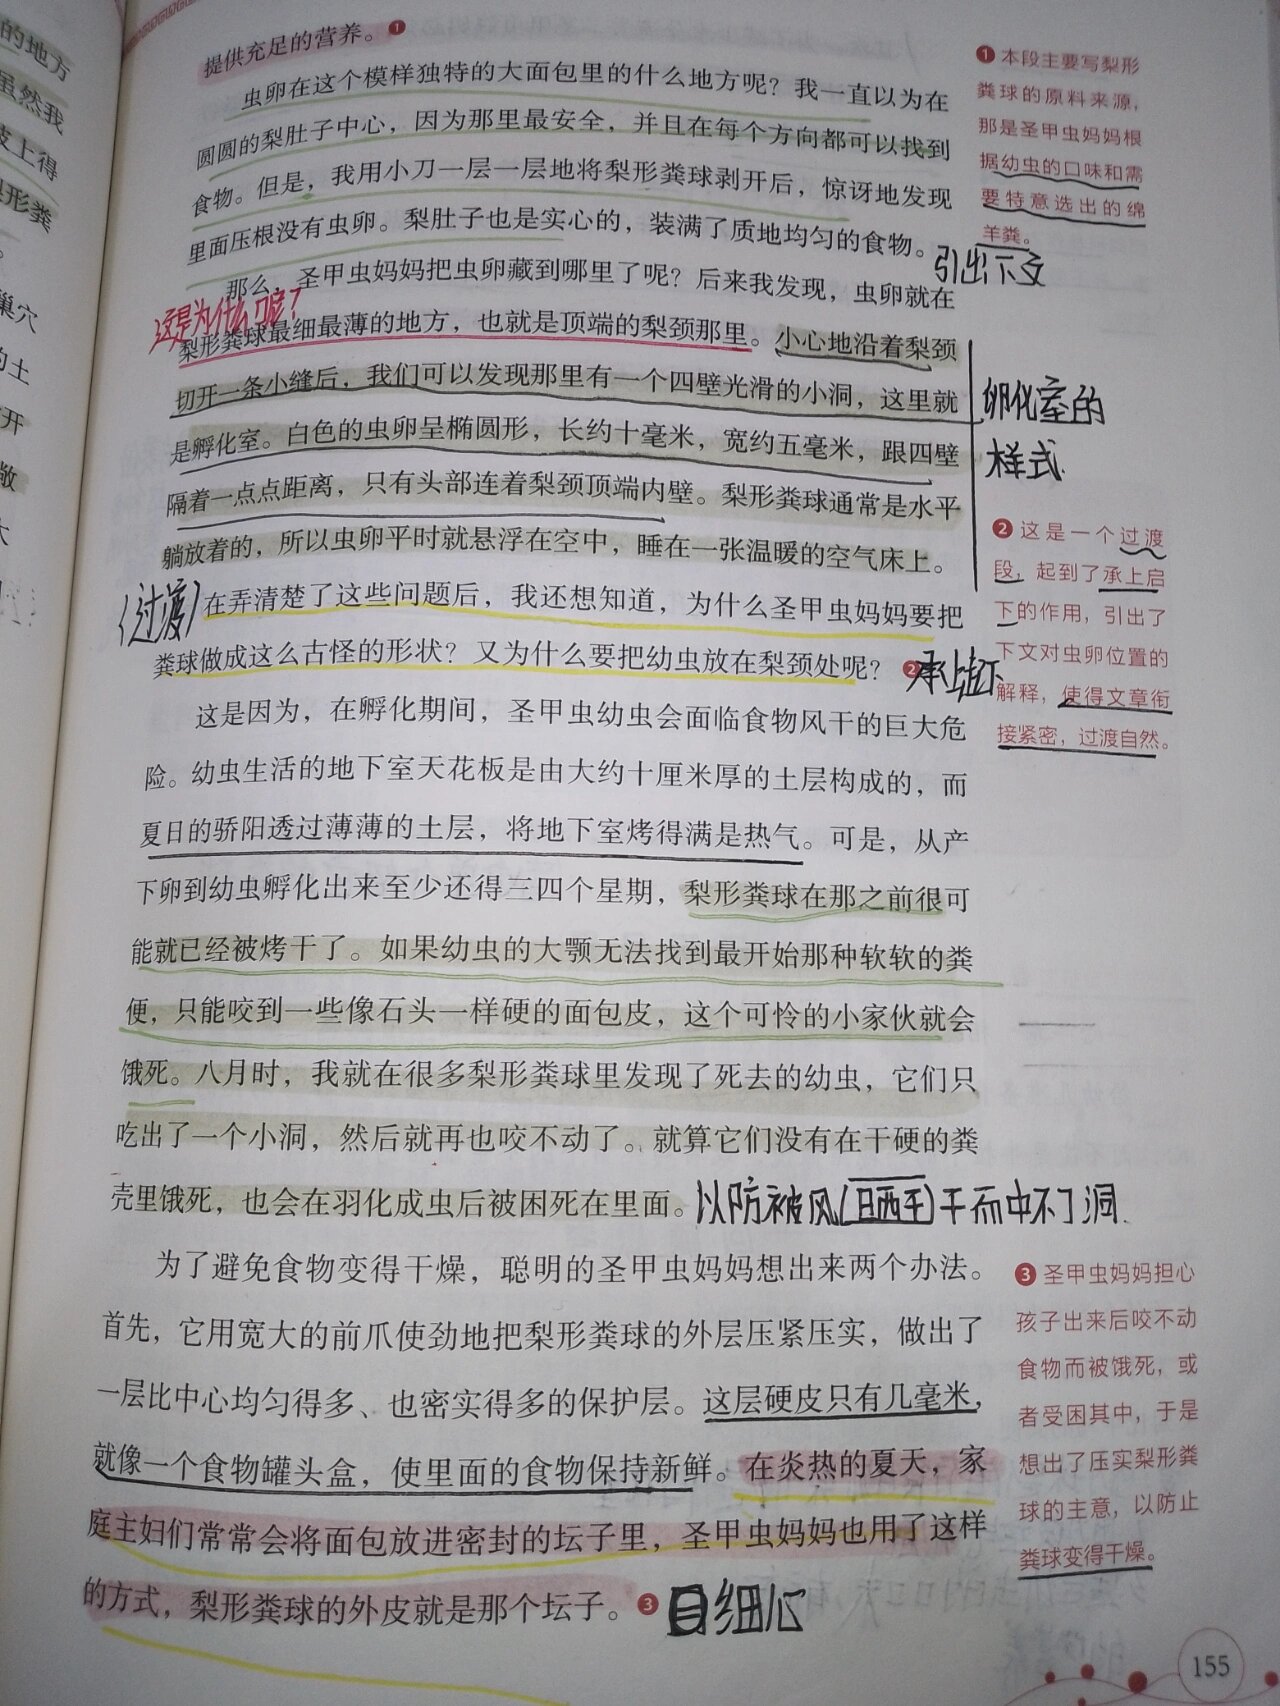 提供充足的营养。❶
虫卵在这个模样独特的大面包里的什么地方呢？我一直以为在
圆圆的梨肚子中心，因为那里最安全，并且在每个方向都可以找到
食物。但是，我用小刀一层一层地将梨形粪球剥开后，惊讶地发现
里面压根没有虫卵。梨肚子也是实心的，装满了质地均匀的食物。
引出下文
那么，圣甲虫妈妈把虫卵藏到哪里了呢？后来我发现，虫卵就在
这是为什么呢？
梨形粪球最细最薄的地方，也就是顶端的梨颈那里。小心地沿着梨颈
切开一条小缝后，我们可以发现那里有一个四壁光滑的小洞，这里就
是孵化室。白色的虫卵呈椭圆形，长约十毫米，宽约五毫米，跟四壁
隔着一点点距离，只有头部连着梨颈顶端内壁。梨形粪球通常是水平
躺放着的，所以虫卵平时就悬浮在空中，睡在一张温暖的空气床上。
卵化室的
样式
（过渡）
在弄清楚了这些问题后，我还想知道，为什么圣甲虫妈妈要把
粪球做成这么古怪的形状？又为什么要把幼虫放在梨颈处呢？❷
承上启下
这是因为，在孵化期间，圣甲虫幼虫会面临食物风干的巨大危
险。幼虫生活的地下室天花板是由大约十厘米厚的土层构成的，而
夏日的骄阳透过薄薄的土层，将地下室烤得满是热气。可是，从产
下卵到幼虫孵化出来至少还得三四个星期，梨形粪球在那之前很可
能就已经被烤干了。如果幼虫的大颚无法找到最开始那种软软的粪
便，只能咬到一些像石头一样硬的面包皮，这个可怜的小家伙就会
饿死。八月时，我就在很多梨形粪球里发现了死去的幼虫，它们只
吃出了一个小洞，然后就再也咬不动了。就算它们没有在干硬的粪
壳里饿死，也会在羽化成虫后被困死在里面。
以防被风（日晒干）干而咬不了洞.
为了避免食物变得干燥，聪明的圣甲虫妈妈想出来两个办法。
首先，它用宽大的前爪使劲地把梨形粪球的外层压紧压实，做出了
一层比中心均匀得多、也密实得多的保护层。这层硬皮只有几毫米，
就像一个食物罐头盒，使里面的食物保持新鲜。在炎热的夏天，家
庭主妇们常常会将面包放进密封的坛子里，圣甲虫妈妈也用了这样
的方式，梨形粪球的外皮就是那个坛子。❸
细心
❶ 本段主要写梨形
粪球的原料来源，
那是圣甲虫妈妈根
据幼虫的口味和需
要特意选出的绵
羊粪。
❷ 这是一个过渡
段，起到了承上启
下的作用，引出了
下文对虫卵位置的
解释，使得文章衔
接紧密，过渡自然。
❸ 圣甲虫妈妈担心
孩子出来后咬不动
食物而被饿死，或
者受困其中，于是
想出了压实梨形粪
球的主意，以防止
粪球变得干燥。
155
的地方
虽然我
支上得
梨形粪
巢穴
的土
开
敞